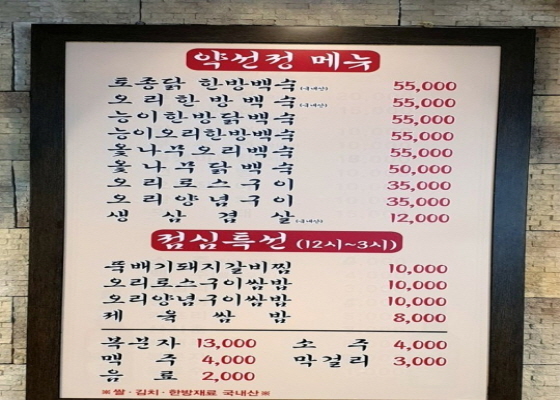 약선정 메뉴
토종닭 한방백숙 (국내산) 55,000
오리한방백숙 (국내산) 55,000
능이한방닭백숙 55,000
능이오리한방백숙 55,000
옻나무오리백숙 55,000
옻나무닭백숙 50,000
오리로스구이 35,000
오리양념구이 35,000
생삼겹살 (국내산) 12,000
점심특선 (12시~3시)
뚝배기돼지갈비찜 10,000
오리로스구이쌈밥 10,000
오리양념구이쌈밥 10,000
제육쌈밥 8,000
복분자 13,000 소주 4,000
맥주 4,000 막걸리 3,000
음료 2,000
※ 쌀 · 김치 · 한방재료 국내산 ※